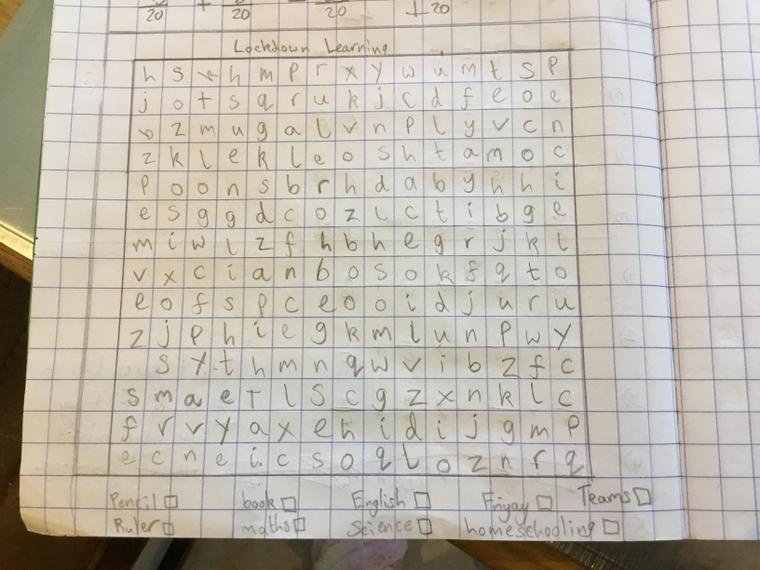 20 + 20 20 + 20
Lockdown Learning
h s x h m p r x y w u m t s p
j o t s q r u k j c d f e o e
o z m u g a l v n p l y v c n
z k l e k l e o s h t a m o c
p o o n s b r h d a b y h h i
e s g g d c o z l c t i b g e
m i w l z f h b h e g r j k l
v x c i a n b o s o k f q t o
e o f s p c e o o i d j u r u
z j p h i e g k m l u n p w y
s y t h m n q w v i b z f c
s m a e t l s c g z x n k l c
f r v y a x e h i d i j g m p
e c n e i c s o q l o z n r q
Pencil book English Friyay Teams
Ruler maths Science homeschooling